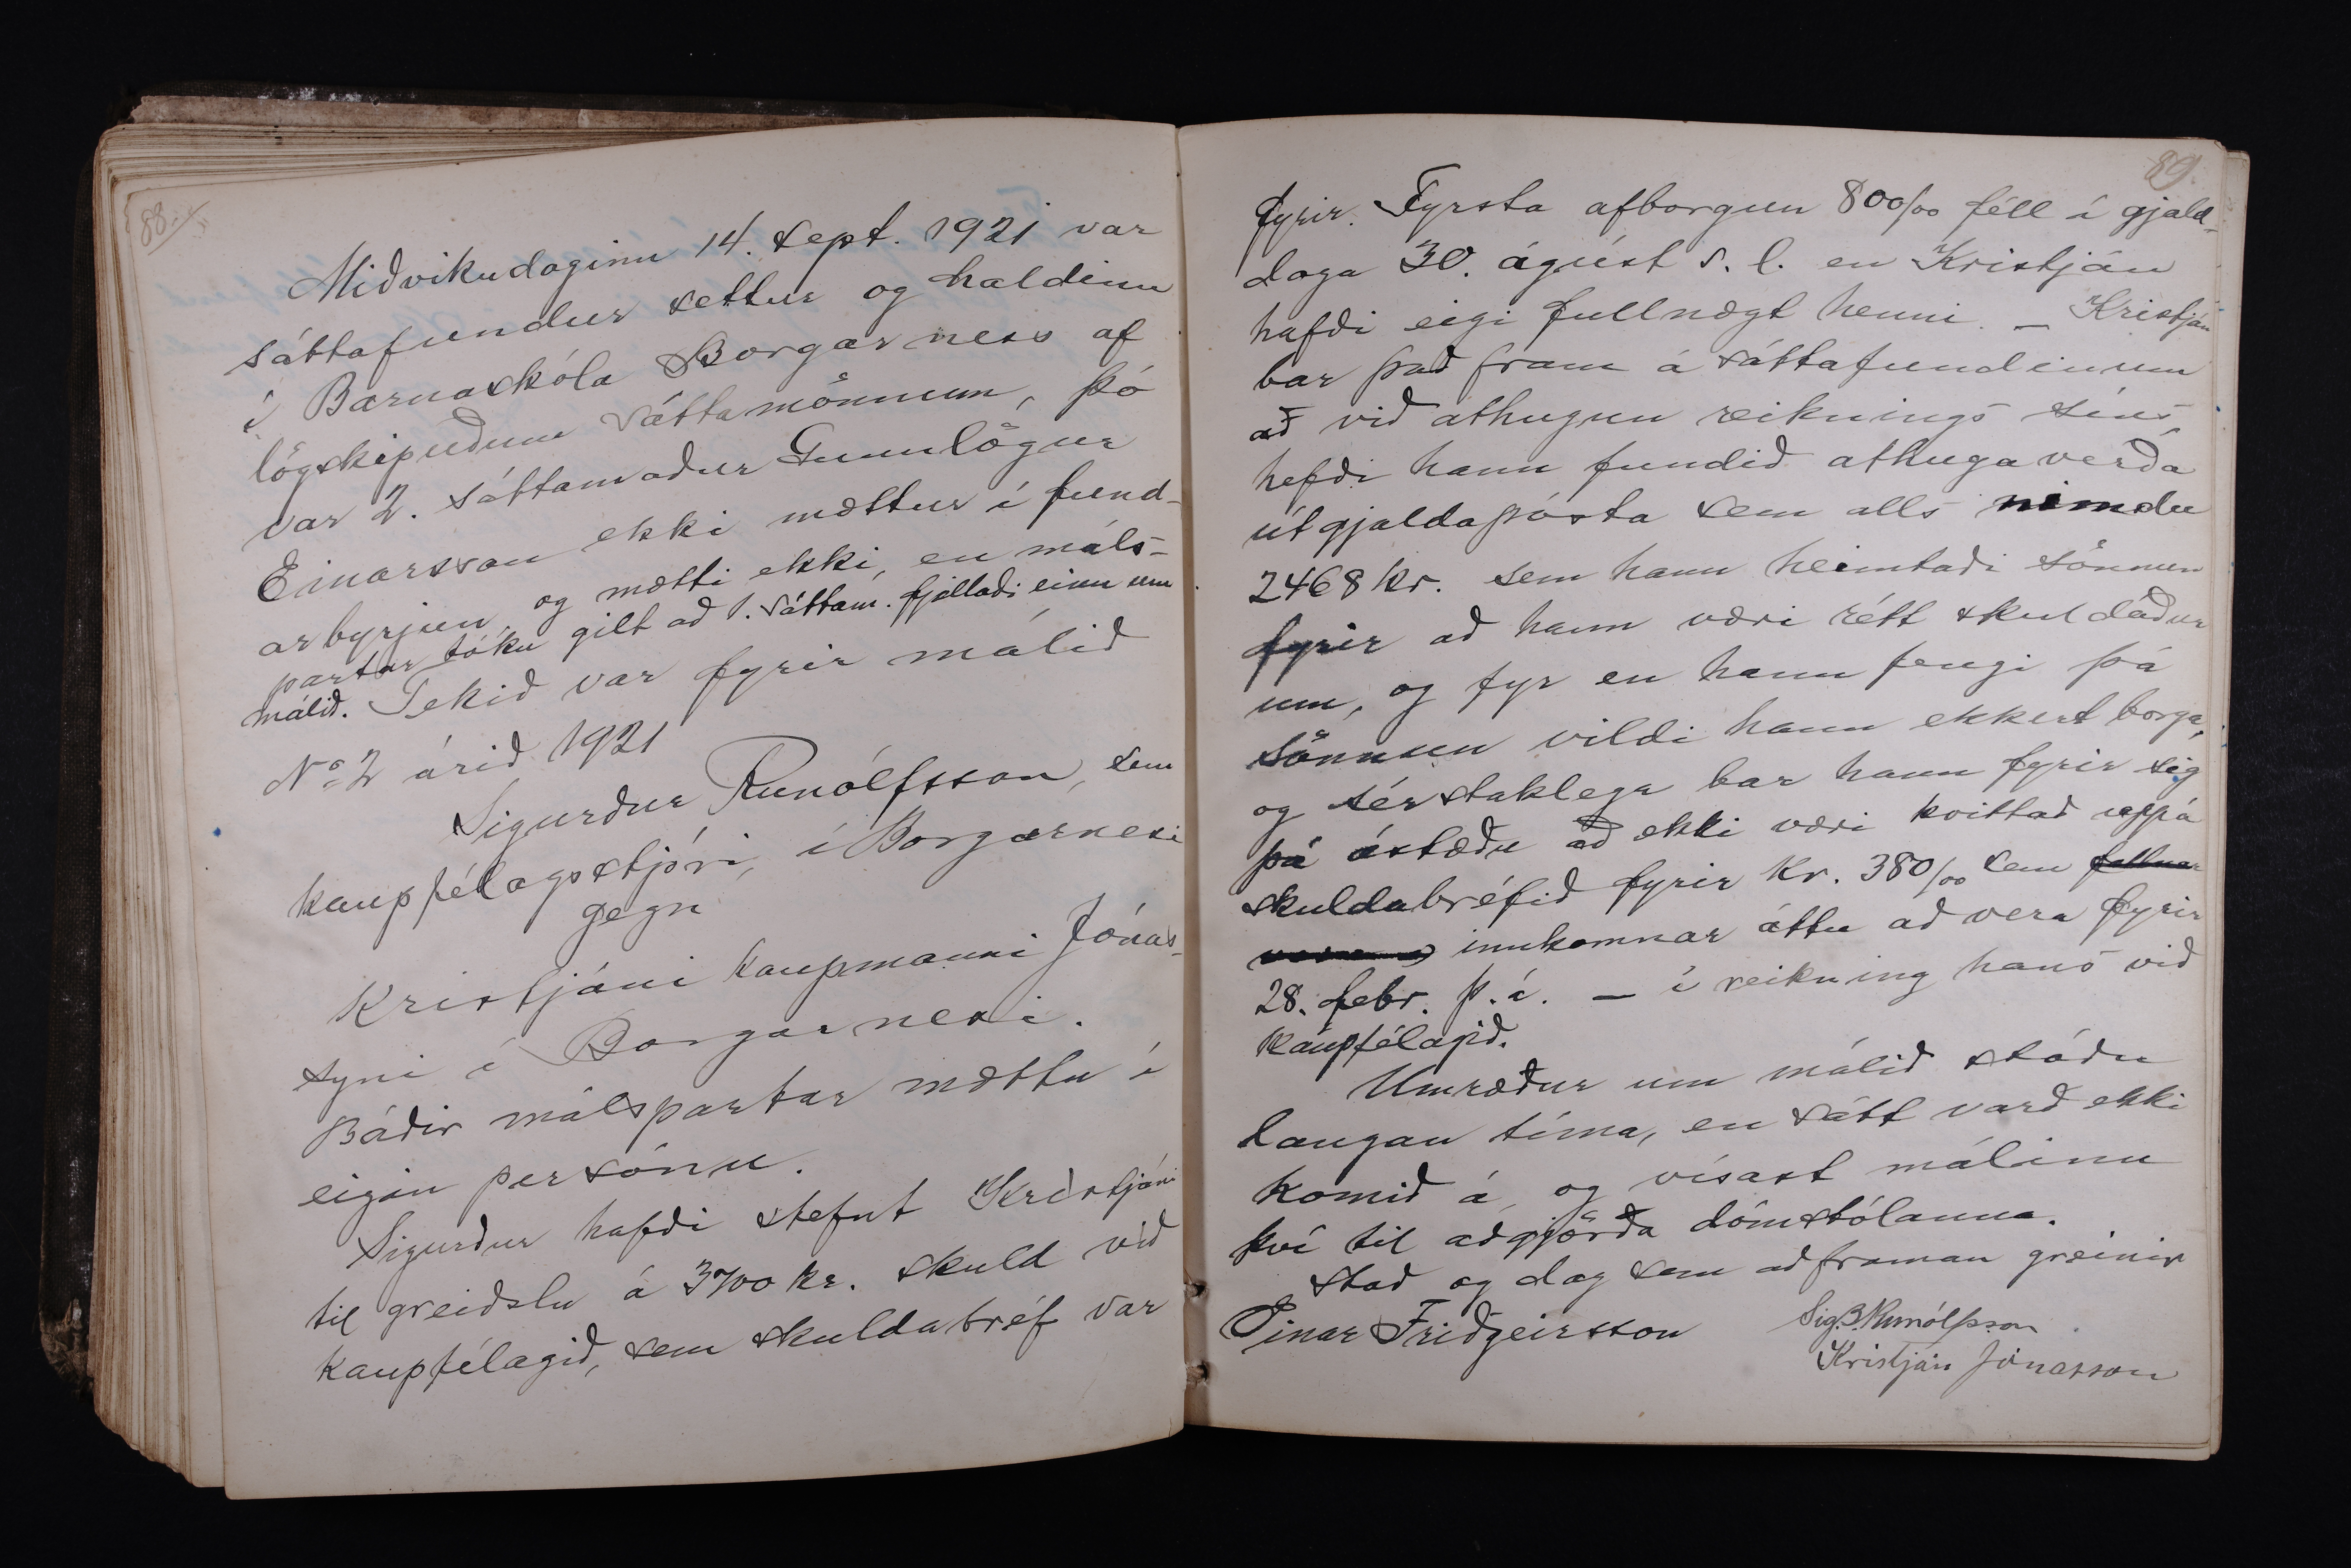 88.
Miðvikudaginn 14. sept. 1921 var
sáttafundur settur og haldinn
í Barnaskóla Borgarness af
lögskipuðum sáttamönnum, þó
var 2. sáttamaður Gunnlögur
Einarsson ekki mættur í fund-
arbyrjun, og mætti ekki, en máls-
partar tóku gilt að 1. sáttam. fjallaði einn um
málið. Tekið var fyrir málið
No 2 árið 1921
Sigurður Runólfsson, sem
kaupfélagsstjóri, í Borgarnesi
gegn
Kristjáni kaupmanni Jónas-
syni í Borgarnesi.
Báðir málspartar mættu í
eigin persónu.
Sigurður hafði stefnt Kristjáni
til greiðslu á 3700 kr. skuld við
kaupfélagið, sem skuldabréf var
89.
fyrir. Fyrsta afborgun 800/00 féll í gjald-
daga 30. ágúst s. l. en Kristján
hafði eigi fullnægt henni. — Kristján
bar það fram á sáttafundinum
að við athugun reiknings síns,
hefði hann fundið athugaverða
útgjaldapósta sem alls nimdu
2468 kr. sem hann heimtaði sönnun
fyrir að hann væri rétt skuldaður
um, og fyr en hann fengi þá
sönnun vildi hann ekkert borga,
og sérstaklega bar hann fyrir sig
þá ástæðu að ekki væri kvittað uppá
skuldabréfið fyrir Kr. 380/00 sem fallnar
innkomnar áttu að vera fyrir
28. febr. þ. á. — í reikning hans við
Kaupfélagið.
Umræður um málið stóðu
langan tíma, en sátt varð ekki
komið á, og vísast málinu
því til aðgjörða dómstólanna.
Stað og dag sem að framan greinir
Einar Friðgeirsson Sig. B. Runólfsson
Kristján Jónasson